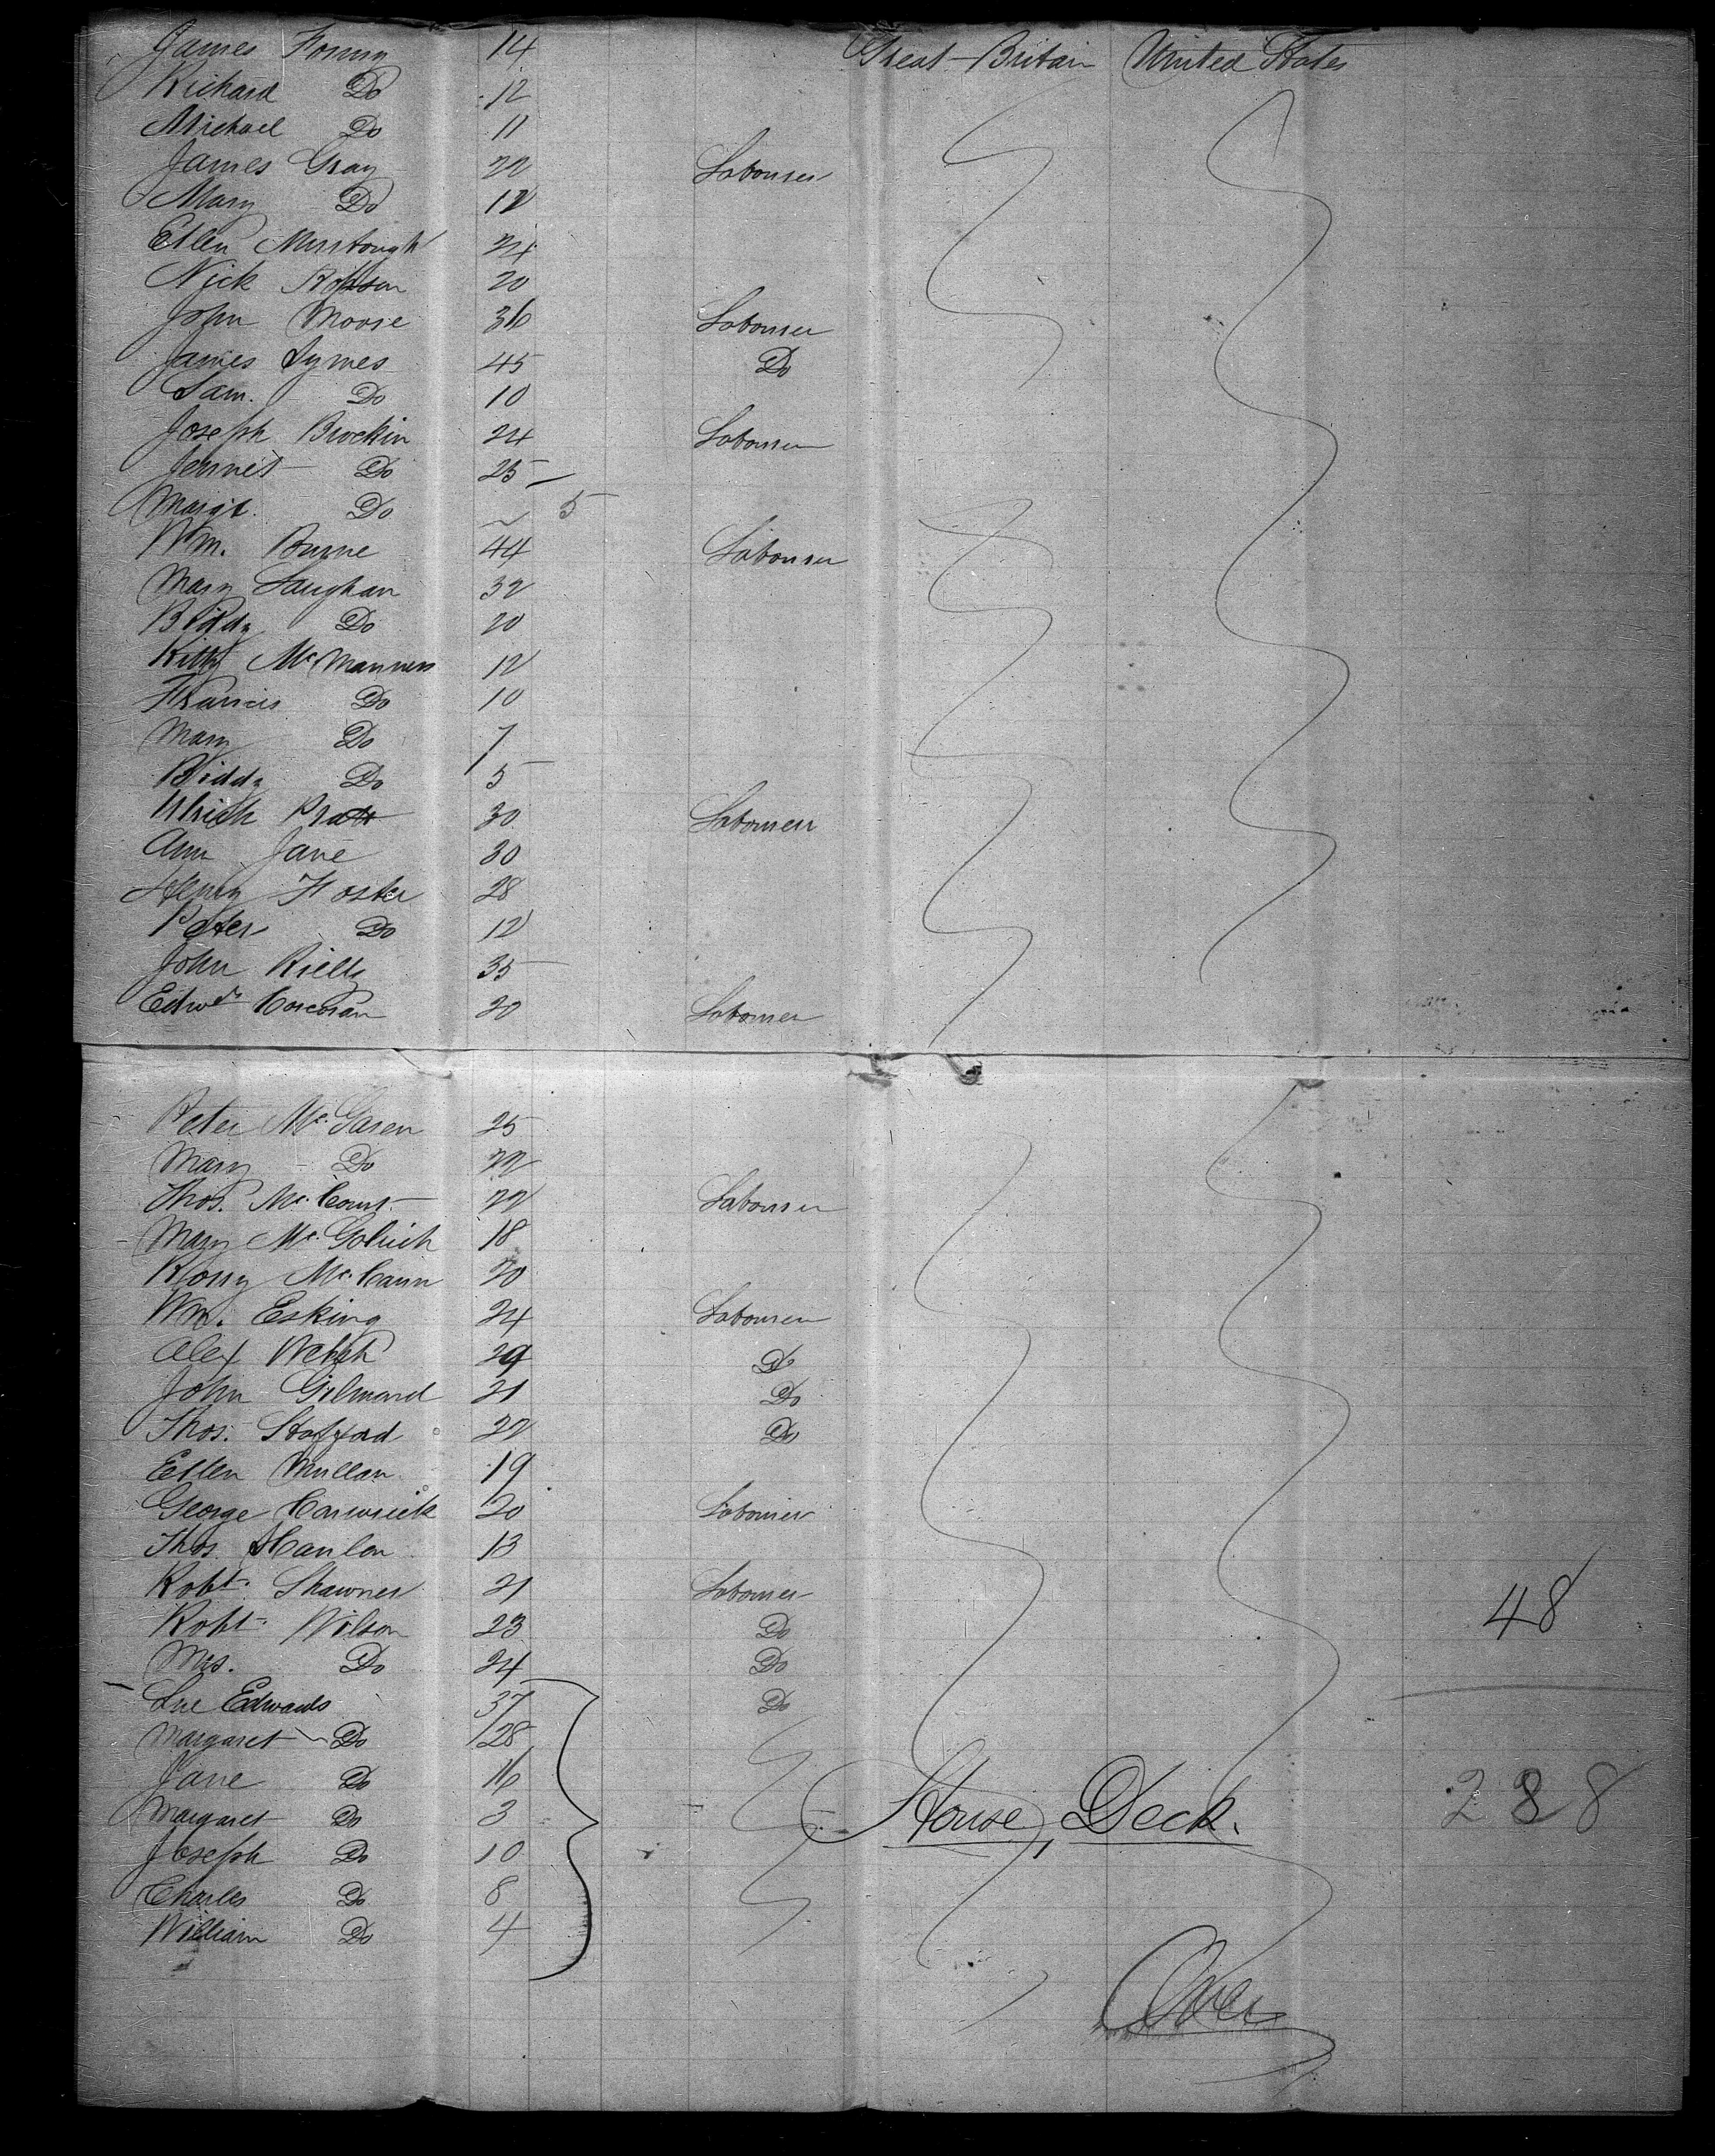 James Fonny 14 Great-Britain United States
Richard Do 12
Michael Do 11
James Gray 22 Labourer
Mary Do 12
Ellen Murtough 24
Nick Robson 20
John Moore 36 Labourer
James Symes 45 Do
Sam. Do 10
Joseph Brockin 24 Labourer
Jennet Do 25
Margt. Do 5
Wm. Burne 44 Labourer
Mary Laughan 32
Biddy Do 20
Kitty McManners 12
Francis Do 10
Mary Do 7
Biddy Do 5
Ulrich Pratt 30 Labourer
Ann Jane 30
Henry Foster 28
Peter Do 12
John Rielly 35
Edwd. Corcoran 20 Labourer
Peter McGaren 25
Mary Do 22
Thos. McCourt 22 Labourer
Mary McGolrich 18
Rosy McCann 20
Wm. Esking 24 Labourer
Alex Welsh 29 Do
John Gilmard 21 Do
Thos. Stafford 22 Do
Ellen Mullan 19
George Carwrick 20 Labourer
Thos. Hanlon 13
Robt. Shawner 21 Labourer 48
Robt. Wilson 23 Do
Mrs. Do 24 Do
Edwards 37 Do
Margaret Do 28
Jane Do 16 288
Margaret Do 3 House, Deck.
Joseph Do 10
Charles Do 8
William Do 4
Over